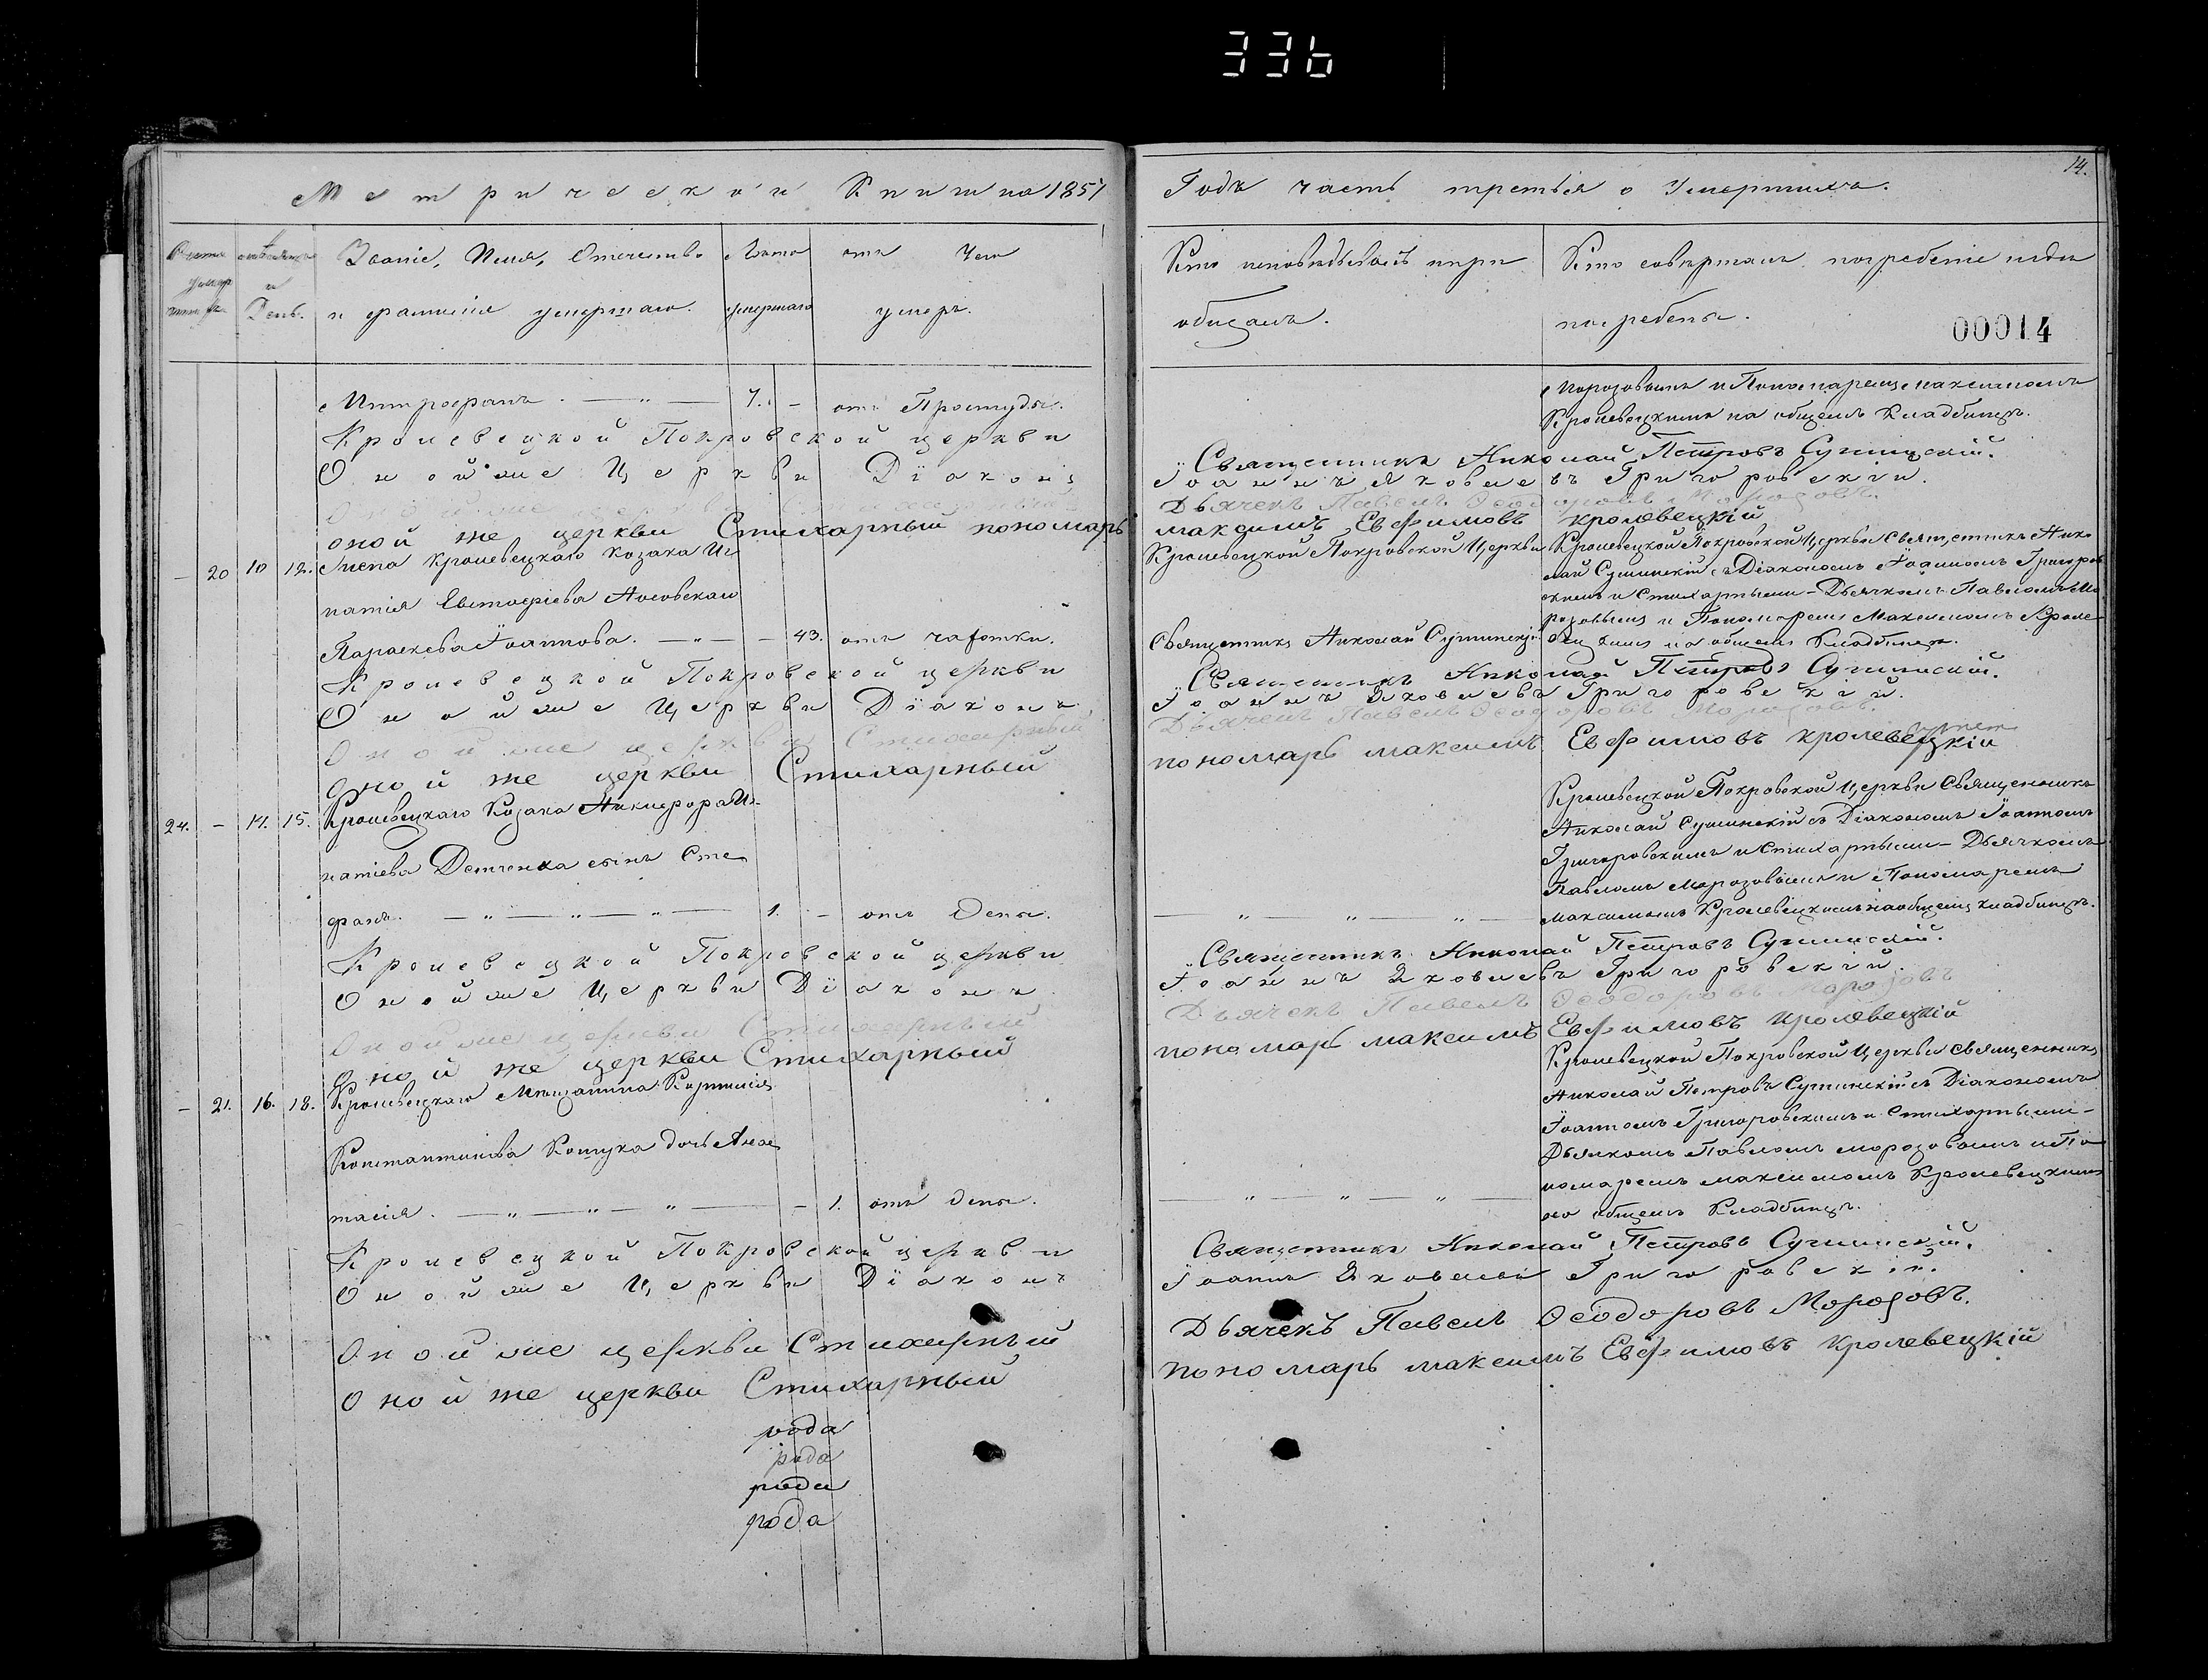 336
14.
Метрической Книги на 1857
Года часть третья о Умершихъ.
Званіе, Имя, Отечество
и фамилія умершаго.
День.
Лѣта
умершаго
отъ Чего
умеръ.
Кто исповѣдывалъ и при
общалъ.
Кто совершалъ погребеніе и гдѣ
погребены.
00014
Митрофанъ. — „ — 7. — отъ Простуды.
Морозовымъ и Пономаремъ Максимомъ
Кролевецкимъ на общемъ Кладбищѣ.
Кролевецкой Покровской церкви Священникъ Николай Петровъ Сушинскій.
Оной же Церкви Діаконъ Іоаннъ Яковлевъ Григоровскій.
Дьячекъ Павелъ Ѳеодоровъ Морозовъ.
оной же церкви Стихарный пономарь максимъ Евфимовъ кролевецкій
— 20 10 12. Жена Кролевецкаго Козака Иг
натія Евстафіева
Параскева Іоаннова. — „ — — 43. отъ чахотки.
Кролевецкой Покровской Церкви
Священникъ Николай Сушинскій
Кролевецкой Покровской Церкви Священникъ Нико
лай Сушинскій съ Діакономъ Іоанномъ Григоров
скимъ и Стихарными — Дьячкомъ Павломъ Мо
розовымъ и Пономаремъ Максимомъ Кроле
вецкимъ на общемъ Кладбищѣ.
Кролевецкой Покровской церкви Священникъ Николай Петровъ Сушинскій.
Оной же Церкви Діаконъ Іоаннъ Яковлевъ Григоровскій.
Оной же церкви Стихарный Дьячекъ Павелъ Ѳеодоровъ Морозовъ.
оной же церкви Стихарный пономарь максимъ Евфимовъ кролевецкій
24. — 14. 15. Кролевецкаго Козака Никифора Иг
натіева Демченка сынъ Сте
фанъ. — „ — „ — „ — 1. — отъ Оспы.
— „ — „ — „ —
Кролевецкой Покровской Церкви Священникъ
Николай Сушинскій съ Діакономъ Іоанномъ
Григоровскимъ и Стихарными — Дьячкомъ
Павломъ Морозовымъ и Пономаремъ
Максимомъ Кролевецкимъ на общемъ кладбищѣ.
Кролевецкой Покровской церкви Священникъ Николай Петровъ Сушинскій.
Оной же Церкви Діаконъ Іоаннъ Яковлевъ Григоровскій.
Оной же церкви Стихарный Дьячекъ Павелъ Ѳеодоровъ Морозовъ
оной же церкви Стихарный пономарь максимъ Евфимовъ кролевецкій
— 21. 16. 18. Кролевецкаго Мѣщанина Корнилія
Константинова дочь Анас
тасія. — „ — „ — „ — — 1. отъ Оспы.
— „ — „ — „ —
Кролевецкой Покровской Церкви Священникъ
Николай Петровъ Сушинскій съ Діакономъ
Іоанномъ Григоровскимъ и Стихарными —
Дьячкомъ Павломъ Морозовымъ и По
номаремъ Максимомъ Кролевецкимъ
на общемъ Кладбищѣ.
Кролевецкой Покровской церкви Священникъ Николай Петровъ Сушинскій.
Оной же Церкви Діаконъ Іоаннъ Яковлевъ Григоровскій.
Оной же церкви Стихарный Дьячекъ Павелъ Ѳеодоровъ Морозовъ.
Оной же церкви Стихарный пономарь максимъ Евфимовъ кролевецкій
рода
рода
рода
рода